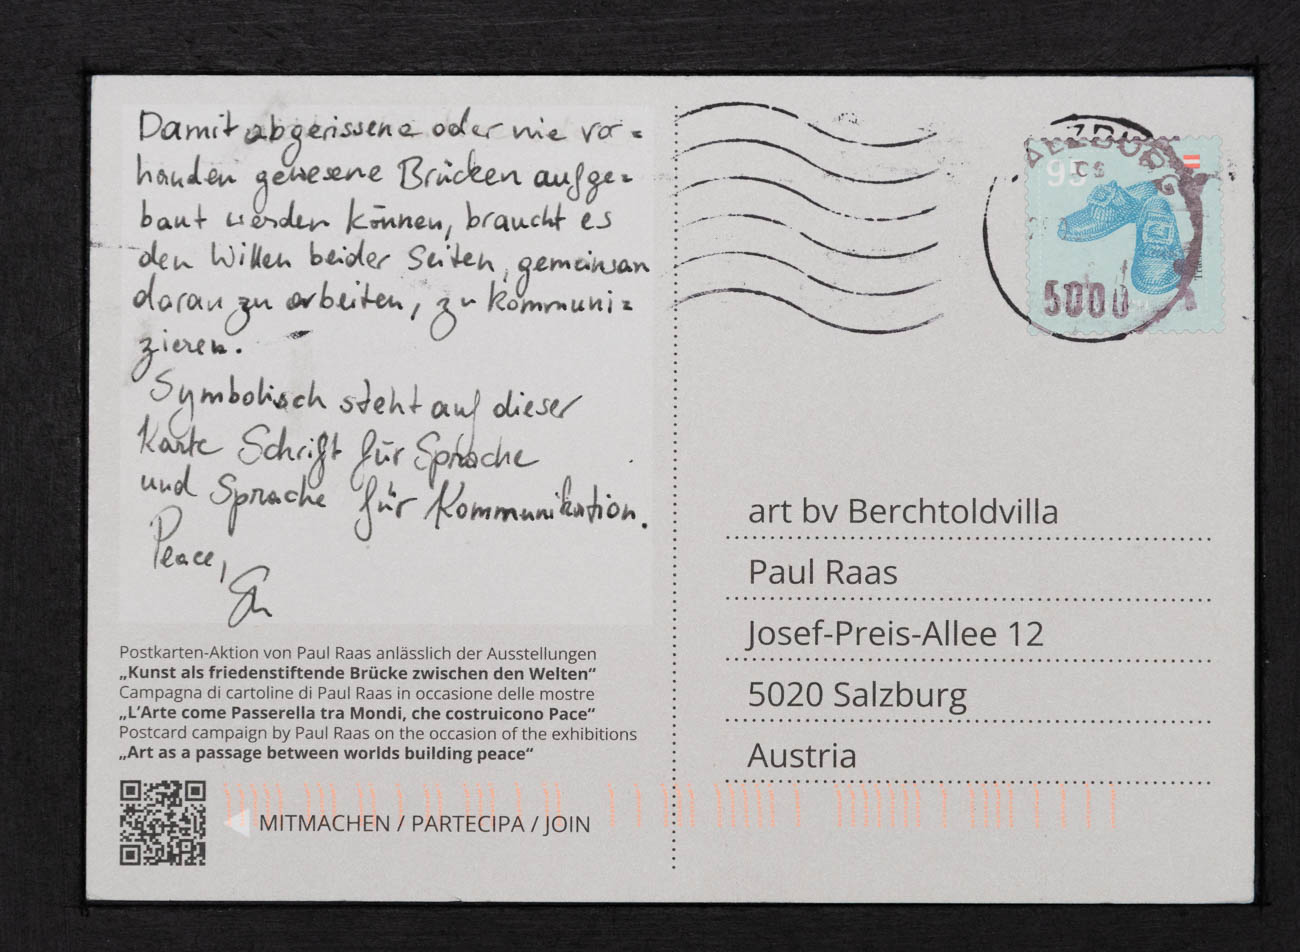 Damit abgerissene oder nie vor=
handen gewesene Brücken aufge=
baut werden können, braucht es
den Willen beider Seiten, gemeinsam
daran zu arbeiten, zu kommuni=
zieren.
Symbolisch steht auf dieser
Karte Schrift für Sprache
und Sprache für Kommunikation.
Peace,
Postkarten-Aktion von Paul Raas anlässlich der Ausstellungen
„Kunst als friedenstiftende Brücke zwischen den Welten“
Campagna di cartoline di Paul Raas in occasione delle mostre
„L’Arte come Passerella tra Mondi, che costruicono Pace“
Postcard campaign by Paul Raas on the occasion of the exhibitions
„Art as a passage between worlds building peace“
MITMACHEN / PARTECIPA / JOIN
95
5000
art bv Berchtoldvilla
Paul Raas
Josef-Preis-Allee 12
5020 Salzburg
Austria